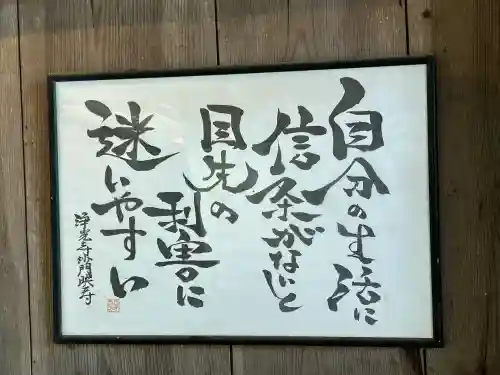 自分の生活に
信条がないと
目先の
利害に
迷いやすい
浄光寺外門映寿